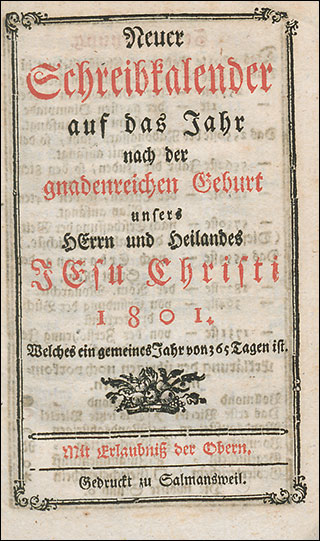 Neuer
Schreibkalender
auf das Jahr
nach der
gnadenreichen Geburt
unsers
HErrn und Heilandes
JEsu Christi
1801.
Welches ein gemeines Jahr von 365 Tagen ist.
Mit Erlaubniß der Obern.
Gedruckt zu Salmansweil.